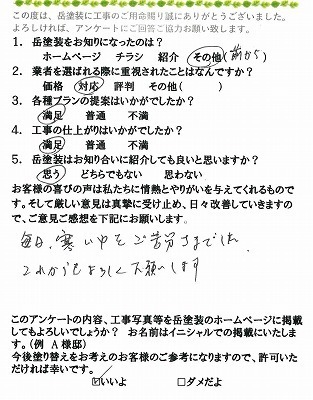 この度は、岳塗装に工事のご用命賜り誠にありがとうございました。
よろしければ、アンケートにご回答ご協力お願い致します。
1．岳塗装をお知りになったのは？
ホームページ　チラシ　紹介　その他（前から）
2．業者を選ばれる際に重視されたことはなんですか？
価格　対応　評判　その他（　　）
3．各種プランの提案はいかがでしたか？
満足　普通　不満
4．工事の仕上がりはいかがでしたか？
満足　普通　不満
5．岳塗装はお知り合いに紹介しても良いと思いますか？
思う　どちらでもない　思わない
お客様の喜びの声は私たちに情熱とやりがいを与えてくれるものです。そして厳しい意見は真摯に受け止め、日々改善していきますので、ご意見ご感想を下記にお願いします。
毎日、寒い中をご苦労さまでした、
これからもよろしくお願いします
このアンケートの内容、工事写真等を岳塗装のホームページに掲載
してもよろしいでしょうか？　お名前はイニシャルでの掲載にいたしま
す。（例　A 様邸）
今後塗り替えをお考えのお客様のご参考になりますので、許可いた
だければ幸いです。
☑いいよ　□ダメだよ